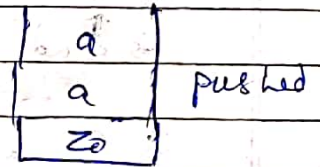 a
a pushed
Z0